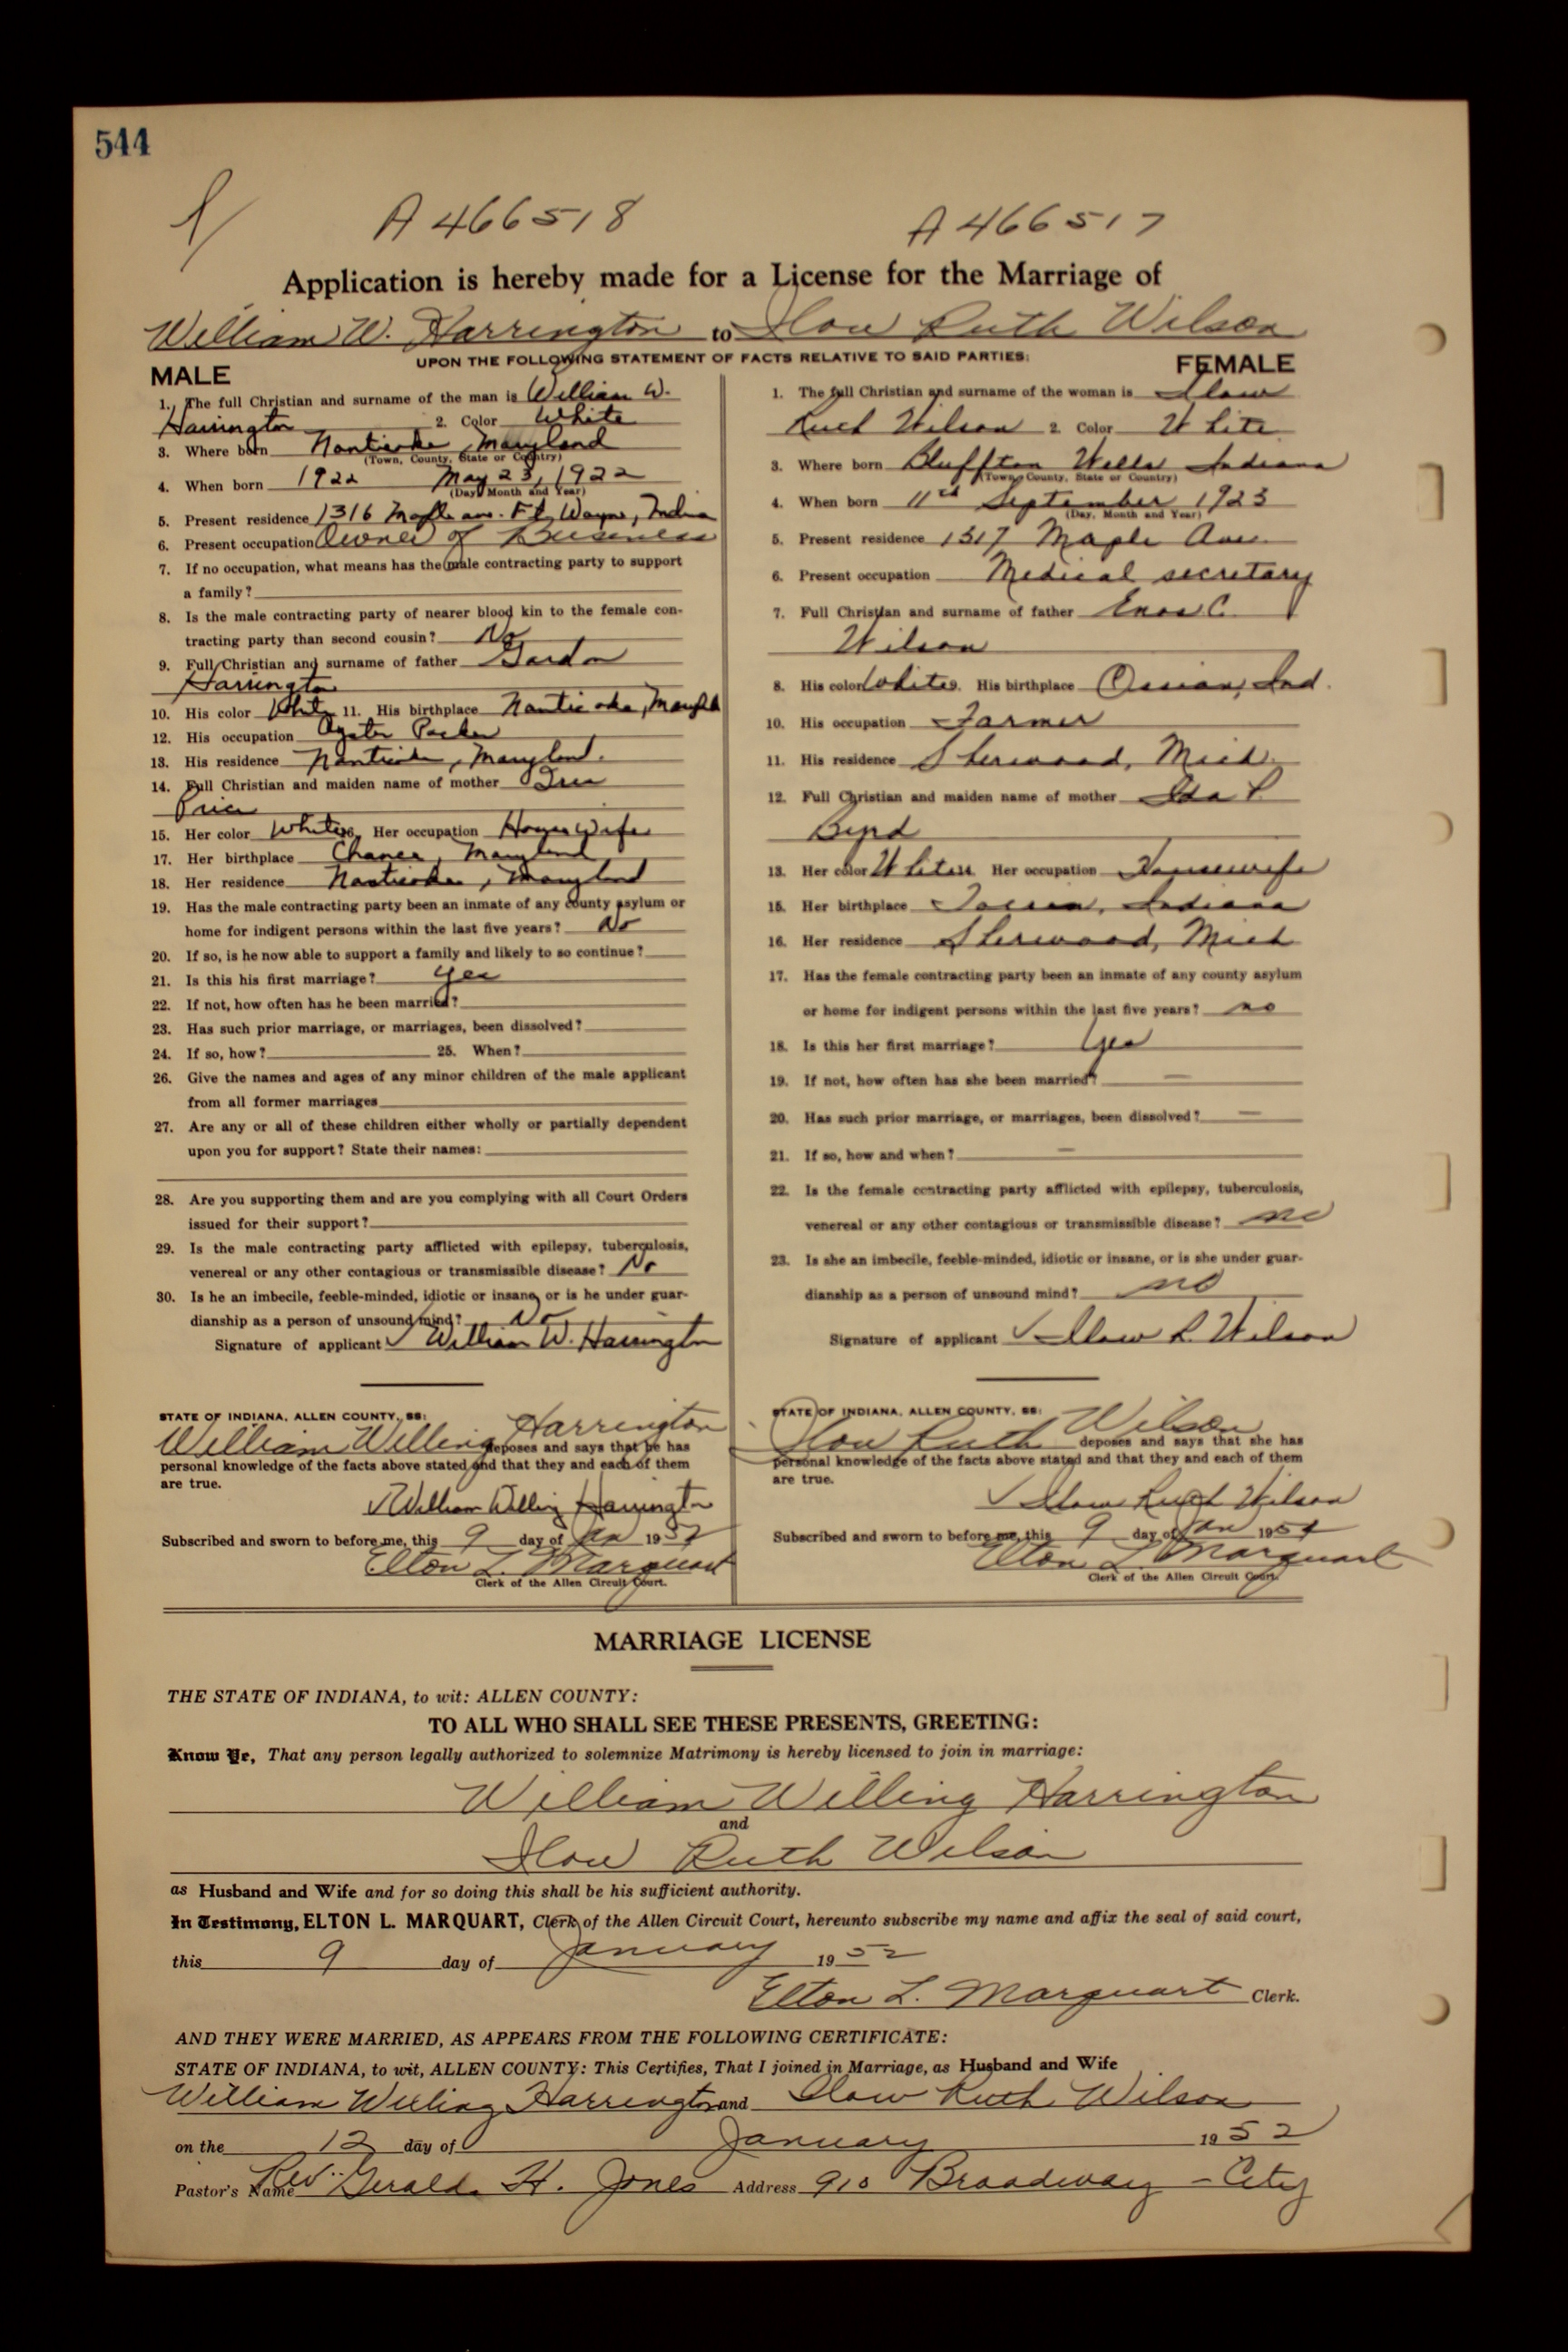 544
A 466518 A 466517
Application is hereby made for a License for the Marriage of
William W. Harrington to Ilow Ruth Wilson
UPON THE FOLLOWING STATEMENT OF FACTS RELATIVE TO SAID PARTIES:
MALE
1. The full Christian and surname of the man is William W.
Harrington 2. Color White
3. Where born Nanticoke, Maryland
(Town, County, State or Country)
4. When born 1922 May 23, 1922
(Day, Month and Year)
5. Present residence 1316 Maple ave. Ft. Wayne, Indiana
6. Present occupation Owner of Business
7. If no occupation, what means has the male contracting party to support
a family?
8. Is the male contracting party of nearer blood kin to the female con-
tracting party than second cousin? No
9. Full Christian and surname of father Gordon
Harrington
10. His color White 11. His birthplace Nanticoke, Maryld
12. His occupation Oyster Packer
13. His residence Nanticoke, Maryland.
14. Full Christian and maiden name of mother
Price
15. Her color White 16. Her occupation House Wife
17. Her birthplace Chance, Maryland
18. Her residence Nanticoke, Maryland
19. Has the male contracting party been an inmate of any county asylum or
home for indigent persons within the last five years? No
20. If so, is he now able to support a family and likely to so continue?
21. Is this his first marriage? yes
22. If not, how often has he been married?
23. Has such prior marriage, or marriages, been dissolved?
24. If so, how? 25. When?
26. Give the names and ages of any minor children of the male applicant
from all former marriages
27. Are any or all of these children either wholly or partially dependent
upon you for support? State their names:
28. Are you supporting them and are you complying with all Court Orders
issued for their support?
29. Is the male contracting party afflicted with epilepsy, tuberculosis,
venereal or any other contagious or transmissible disease? No
30. Is he an imbecile, feeble-minded, idiotic or insane, or is he under guar-
dianship as a person of unsound mind? No
Signature of applicant ✓ William W. Harrington
STATE OF INDIANA, ALLEN COUNTY, SS:
William Willing Harrington deposes and says that he has
personal knowledge of the facts above stated and that they and each of them
are true.
✓ William Willing Harrington
Subscribed and sworn to before me, this 9 day of Jan 1952
Elton L. Marquart
Clerk of the Allen Circuit Court.
FEMALE
1. The full Christian and surname of the woman is Ilow
Ruth Wilson 2. Color White
3. Where born Bluffton Wells Indiana
(Town, County, State or Country)
4. When born 11th September 1923
(Day, Month and Year)
5. Present residence 1317 Maple Ave.
6. Present occupation Medical secretary
7. Full Christian and surname of father Enos C.
Wilson
8. His color White 9. His birthplace Ossian, Ind.
10. His occupation Farmer
11. His residence Sherwood, Mich.
12. Full Christian and maiden name of mother Ida P.
Byrd
13. Her color White 14. Her occupation Housewife
15. Her birthplace Tocsin, Indiana
16. Her residence Sherwood, Mich
17. Has the female contracting party been an inmate of any county asylum
or home for indigent persons within the last five years? no
18. Is this her first marriage? Yes
19. If not, how often has she been married? —
20. Has such prior marriage, or marriages, been dissolved? —
21. If so, how and when? —
22. Is the female contracting party afflicted with epilepsy, tuberculosis,
venereal or any other contagious or transmissible disease? no
23. Is she an imbecile, feeble-minded, idiotic or insane, or is she under guar-
dianship as a person of unsound mind? no
Signature of applicant ✓ Ilow R. Wilson
STATE OF INDIANA, ALLEN COUNTY, SS:
Ilow Ruth Wilson deposes and says that she has
personal knowledge of the facts above stated and that they and each of them
are true.
✓ Ilow Ruth Wilson
Subscribed and sworn to before me, this 9 day of Jan 1952
Elton L. Marquart
Clerk of the Allen Circuit Court.
MARRIAGE LICENSE
THE STATE OF INDIANA, to wit: ALLEN COUNTY:
TO ALL WHO SHALL SEE THESE PRESENTS, GREETING:
Know Ye, That any person legally authorized to solemnize Matrimony is hereby licensed to join in marriage:
William Willing Harrington
and
Ilow Ruth Wilson
as Husband and Wife and for so doing this shall be his sufficient authority.
In Testimony, ELTON L. MARQUART, Clerk of the Allen Circuit Court, hereunto subscribe my name and affix the seal of said court,
this 9 day of January 1952
Elton L. Marquart Clerk.
AND THEY WERE MARRIED, AS APPEARS FROM THE FOLLOWING CERTIFICATE:
STATE OF INDIANA, to wit, ALLEN COUNTY: This Certifies, That I joined in Marriage, as Husband and Wife
William Willing Harrington and Ilow Ruth Wilson
on the 12 day of January 1952
Pastor's Name Rev. Gerald H. Jones Address 910 Broadway - City